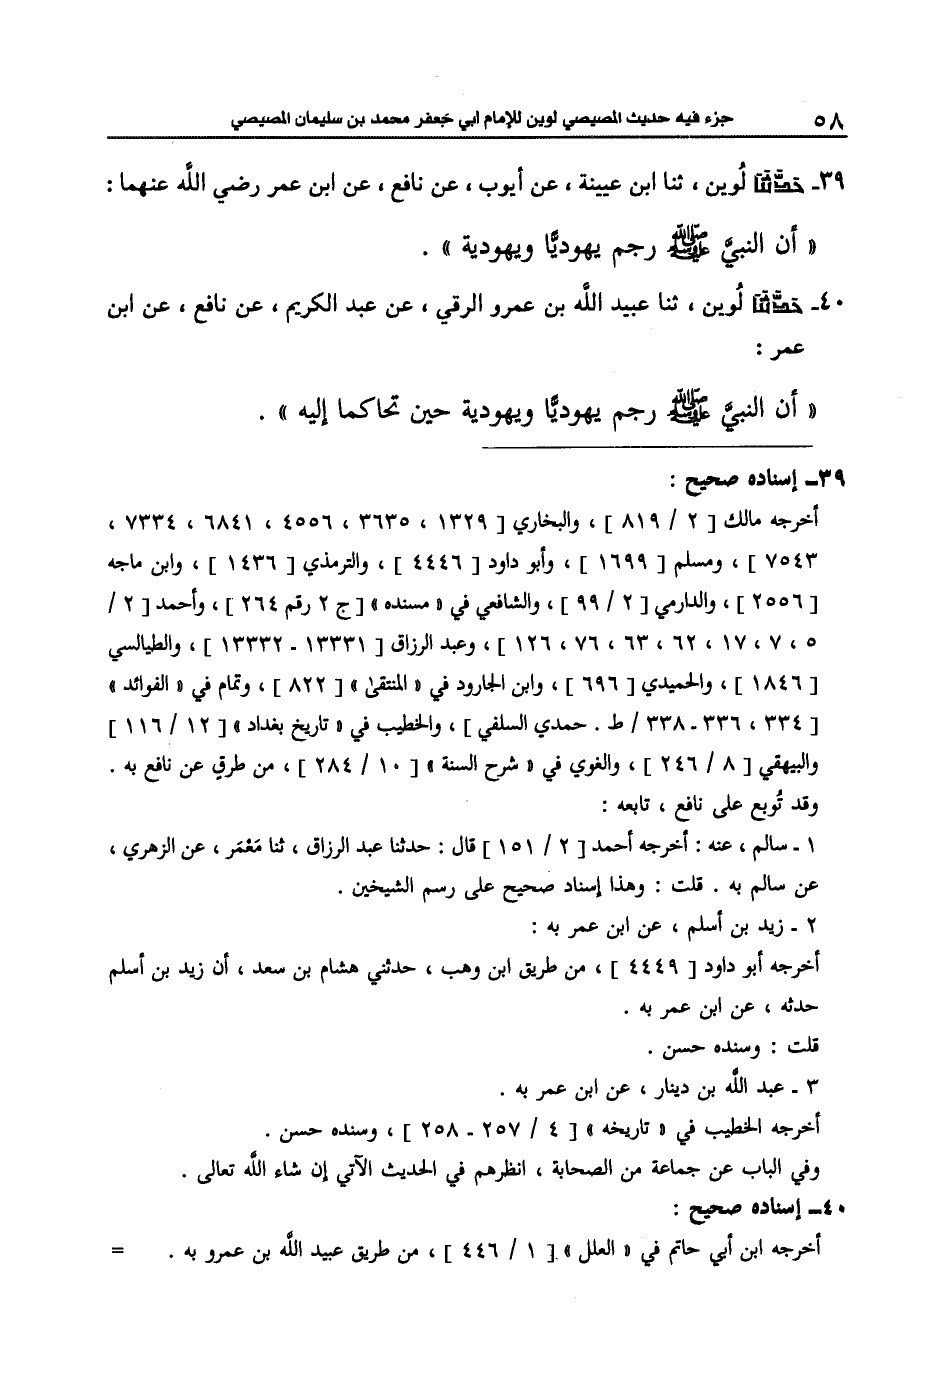 ٥٨ جزء فيه حديث المصيصي لوين للإمام ابي جعفر محمد بن سليمان المصيصي
٣٩ـ حدثنا لُوين ، ثنا ابن عيينة ، عن أيوب ، عن نافع ، عن ابن عمر رضي اللَّه عنهما :
« أن النبيَّ ﷺ رجم يهوديًّا ويهودية » .
٤٠ـ حدثنا لُوين ، ثنا عبيد اللَّه بن عمرو الرقي ، عن عبد الكريم ، عن نافع ، عن ابن
عمر :
« أن النبيَّ ﷺ رجم يهوديًّا ويهودية حين تحاكما إليه » .
٣٩ـ إسناده صحيح :
أخرجه مالك [ ٢ / ٨١٩ ] ، والبخاري [ ١٣٢٩ ، ٣٦٣٥ ، ٤٥٥٦ ، ٦٨٤١ ، ٧٣٣٤ ،
٧٥٤٣ ] ، ومسلم [ ١٦٩٩ ] ، وأبو داود [ ٤٤٤٦ ] ، والترمذي [ ١٤٣٦ ] ، وابن ماجه
[ ٢٥٥٦ ] ، والدارمي [ ٢ / ٩٩ ] ، والشافعي في « مسنده » [ ج ٢ رقم ٢٦٤ ] ، وأحمد [ ٢ /
٥ ، ٧ ، ١٧ ، ٦٢ ، ٦٣ ، ٧٦ ، ١٢٦ ] ، وعبد الرزاق [ ١٣٣٣١ ـ ١٣٣٣٢ ] ، والطيالسي
[ ١٨٤٦ ] ، والحميدي [ ٦٩٦ ] ، وابن الجارود في « المنتقىٰ » [ ٨٢٢ ] ، وتمام في « الفوائد »
[ ٣٣٤ ، ٣٣٦ ـ ٣٣٨ / ط . حمدي السلفي ] ، والخطيب في « تاريخ بغداد » [ ١٢ / ١١٦ ]
والبيهقي [ ٨ / ٢٤٦ ] ، والغوي في « شرح السنة » [ ١٠ / ٢٨٤ ] ، من طرقٍ عن نافع به .
وقد تُوبع على نافع ، تابعه :
١ ـ سالم ، عنه : أخرجه أحمد [ ٢ / ١٥١ ] قال : حدثنا عبد الرزاق ، ثنا مَعْمَر ، عن الزهري ،
عن سالم به . قلت : وهذا إسناد صحيح على رسم الشيخين .
٢ ـ زيد بن أسلم ، عن ابن عمر به :
أخرجه أبو داود [ ٤٤٤٩ ] ، من طريق ابن وهب ، حدثني هشام بن سعد ، أن زيد بن أسلم
حدثه ، عن ابن عمر به .
قلت : وسنده حسن .
٣ ـ عبد اللَّه بن دينار ، عن ابن عمر به .
أخرجه الخطيب في « تاريخه » [ ٤ / ٢٥٧ ـ ٢٥٨ ] ، وسنده حسن .
وفي الباب عن جماعة من الصحابة ، انظرهم في الحديث الآتي إن شاء اللَّه تعالى .
٤٠ـ إسناده صحيح :
أخرجه ابن أبي حاتم في « العلل » [ ١ / ٤٤٦ ] ، من طريق عبيد اللَّه بن عمرو به . =